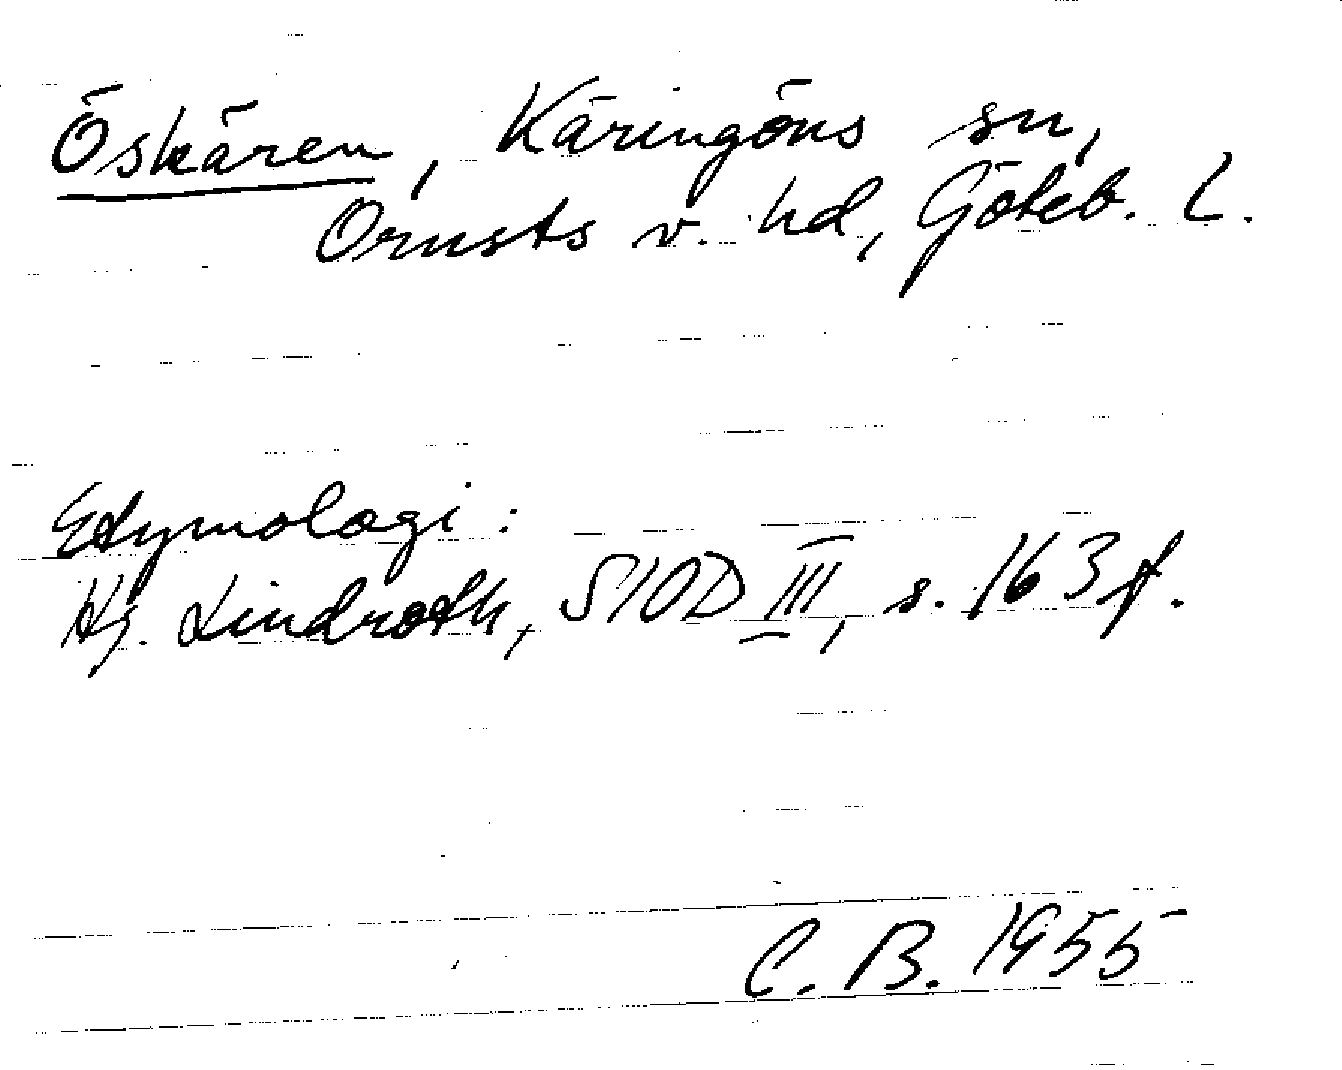 Öskären, Käringöns sn,
Orusts v. hd, Göteb. L.
Etymologi:
Hj. Lindroth, SIOD III, s. 163 f.
C. B. 1955